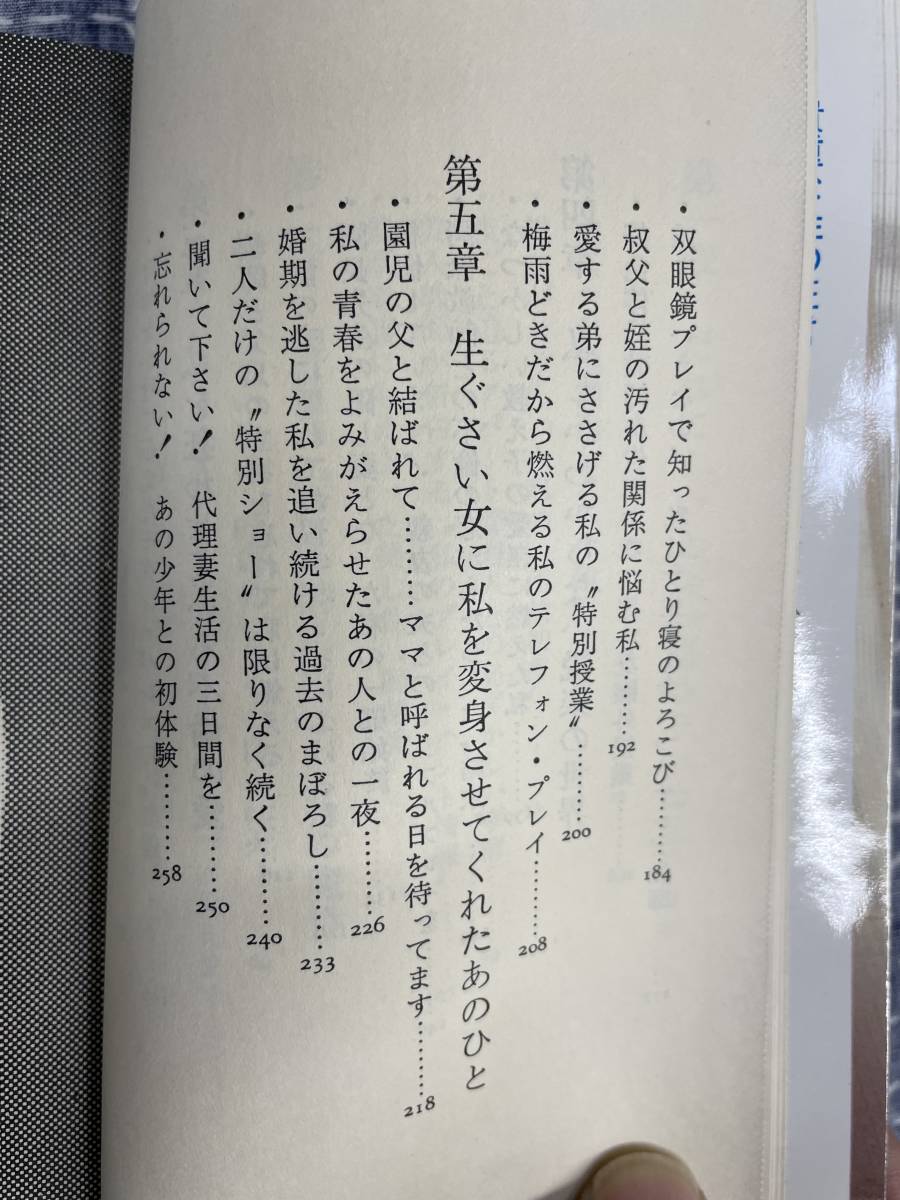 ・双眼鏡プレイで知ったひとり寝のよろこび………184
・叔父と姪の汚れた関係に悩む私………192
・愛する弟にささげる私の〝特別授業〟………200
・梅雨どきだから燃える私のテレフォン・プレイ………208
第五章　生ぐさい女に私を変身させてくれたあのひと
・園児の父と結ばれて………ママと呼ばれる日を待ってます………218
・私の青春をよみがえらせたあの人との一夜………226
・婚期を逃した私を追い続ける過去のまぼろし………233
・二人だけの〝特別ショー〟は限りなく続く………240
・聞いて下さい！　代理妻生活の三日間を………250
・忘れられない！　あの少年との初体験………258